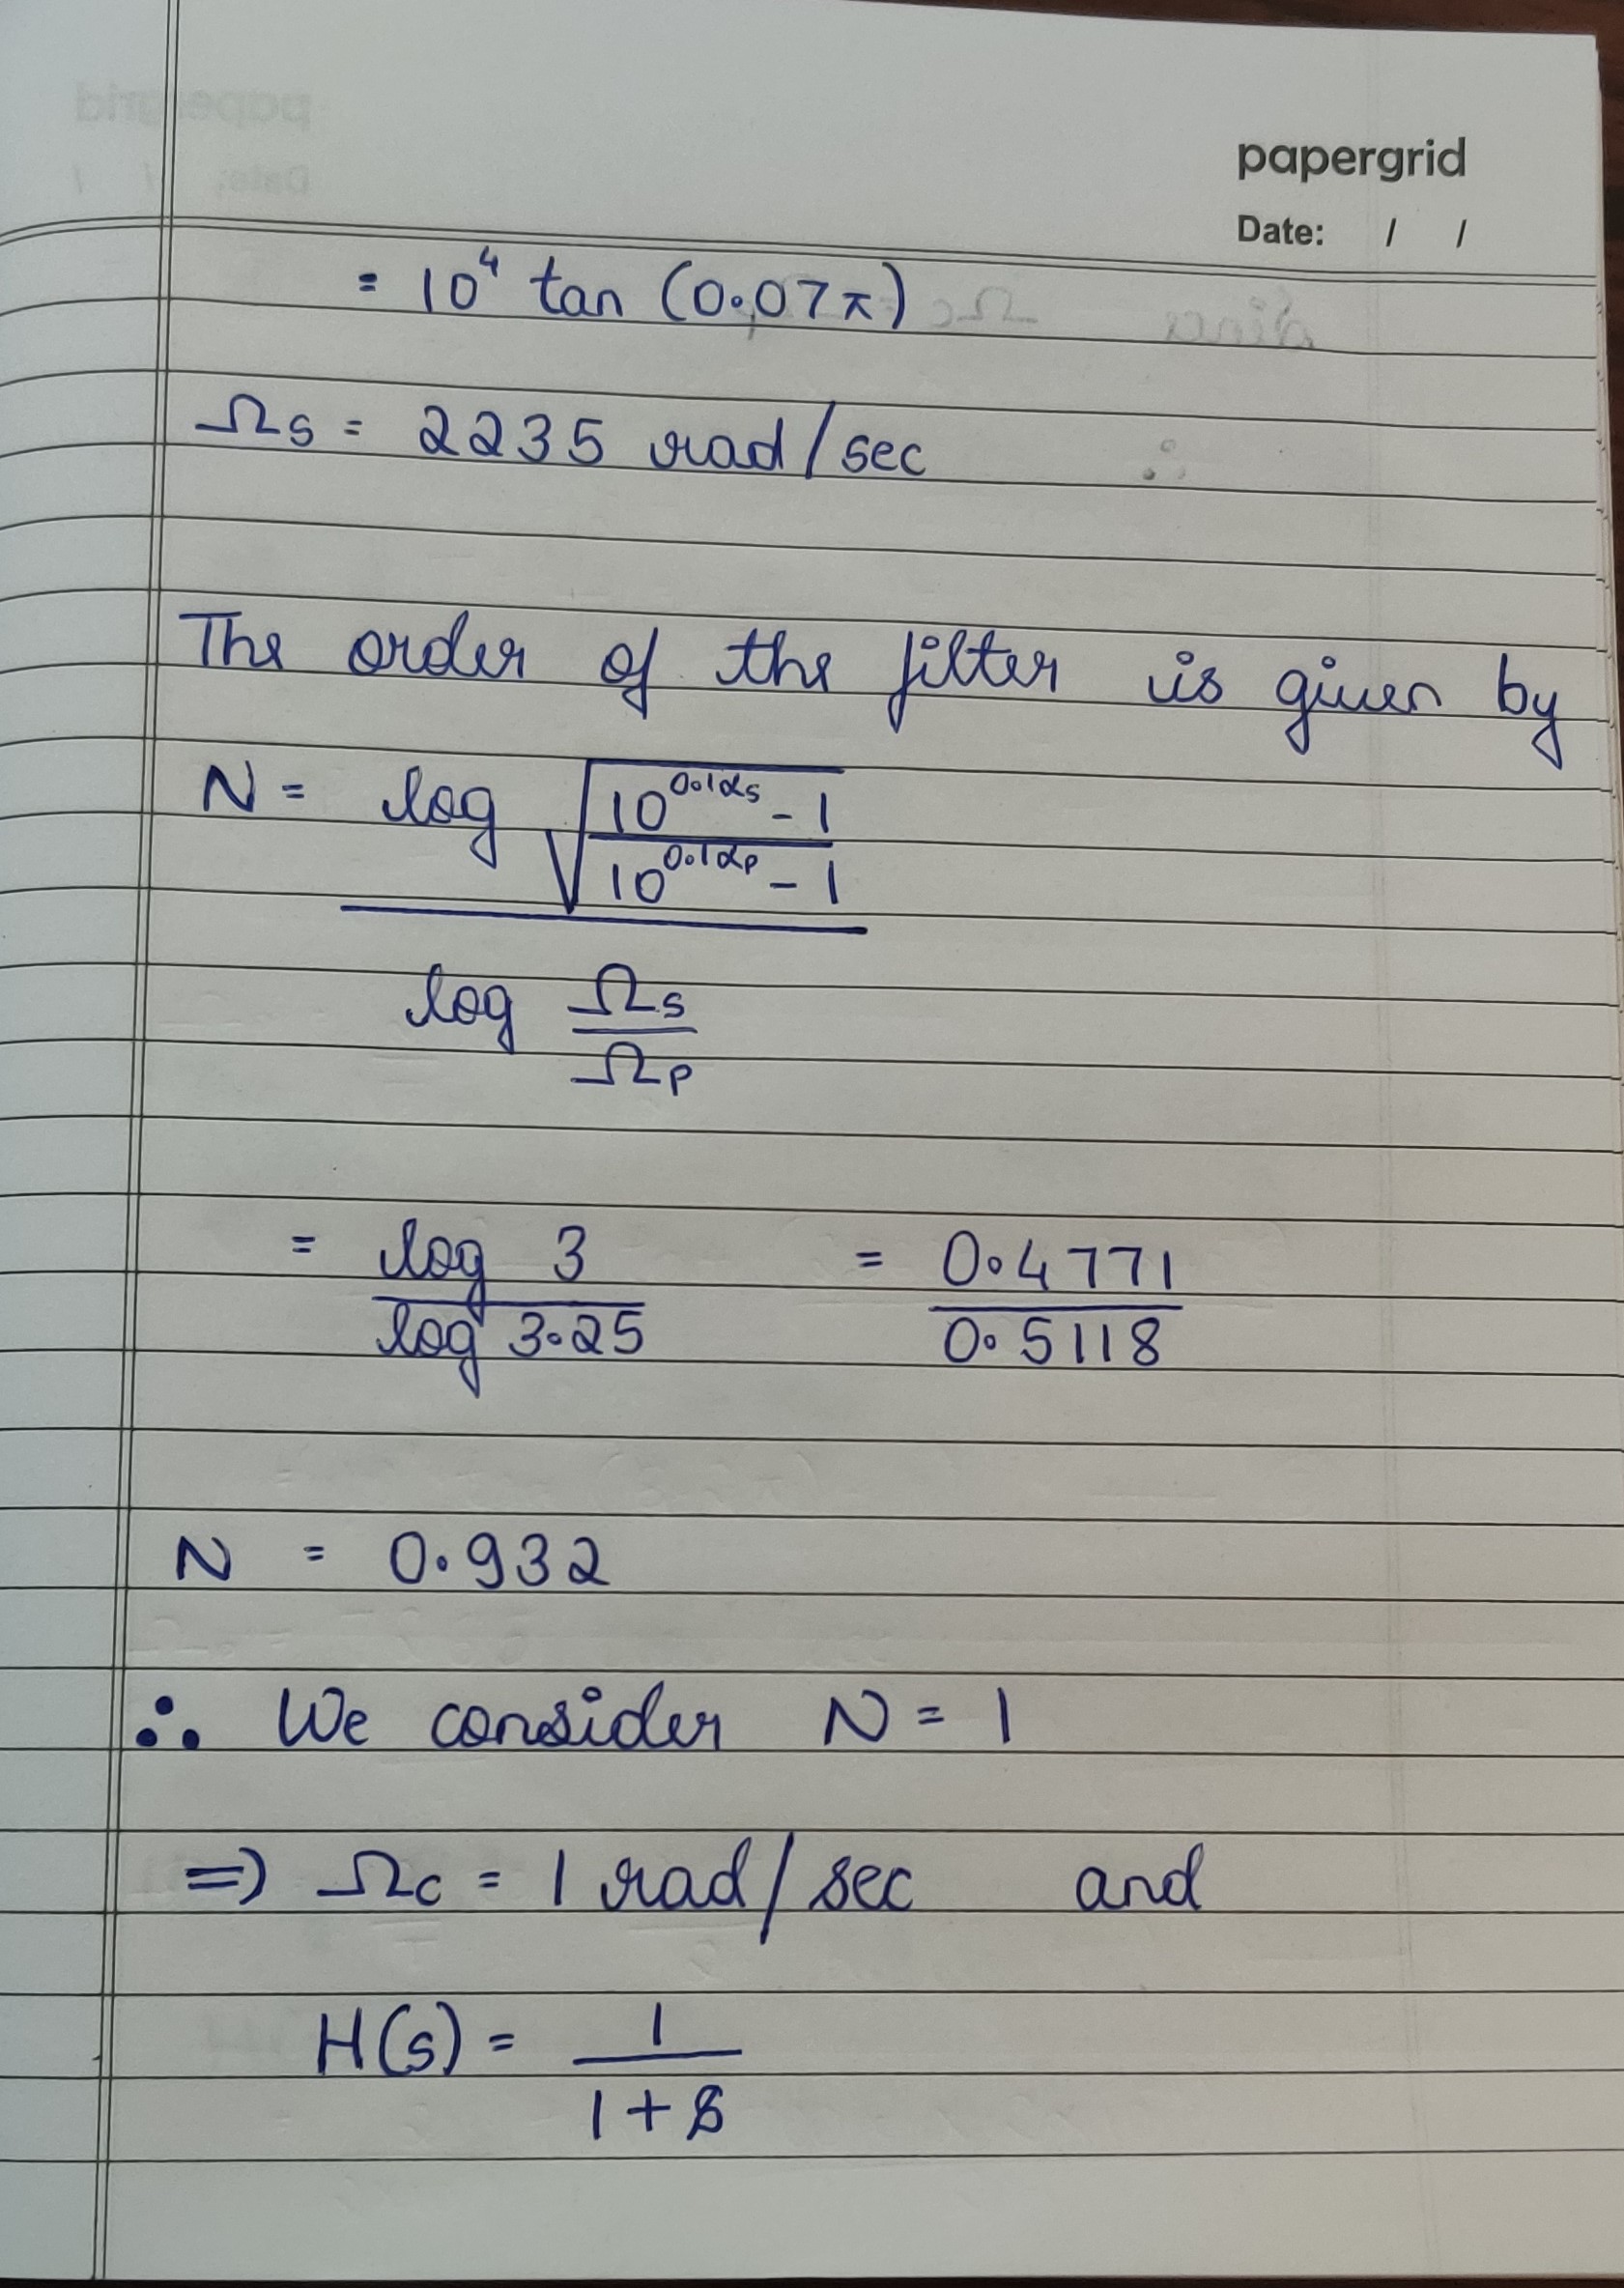 papergrid
Date: / /
= 10⁴ tan (0.07π)
Ωs = 2235 rad/sec
The order of the filter is given by
N = log √((10^(0.1αs) - 1)/(10^(0.1αp) - 1))
log Ωs/Ωp
= log 3 / log 3.25 = 0.4771 / 0.5118
N = 0.932
∴ We consider N = 1
⇒ Ωc = 1 rad/sec and
H(s) = 1
1 + s